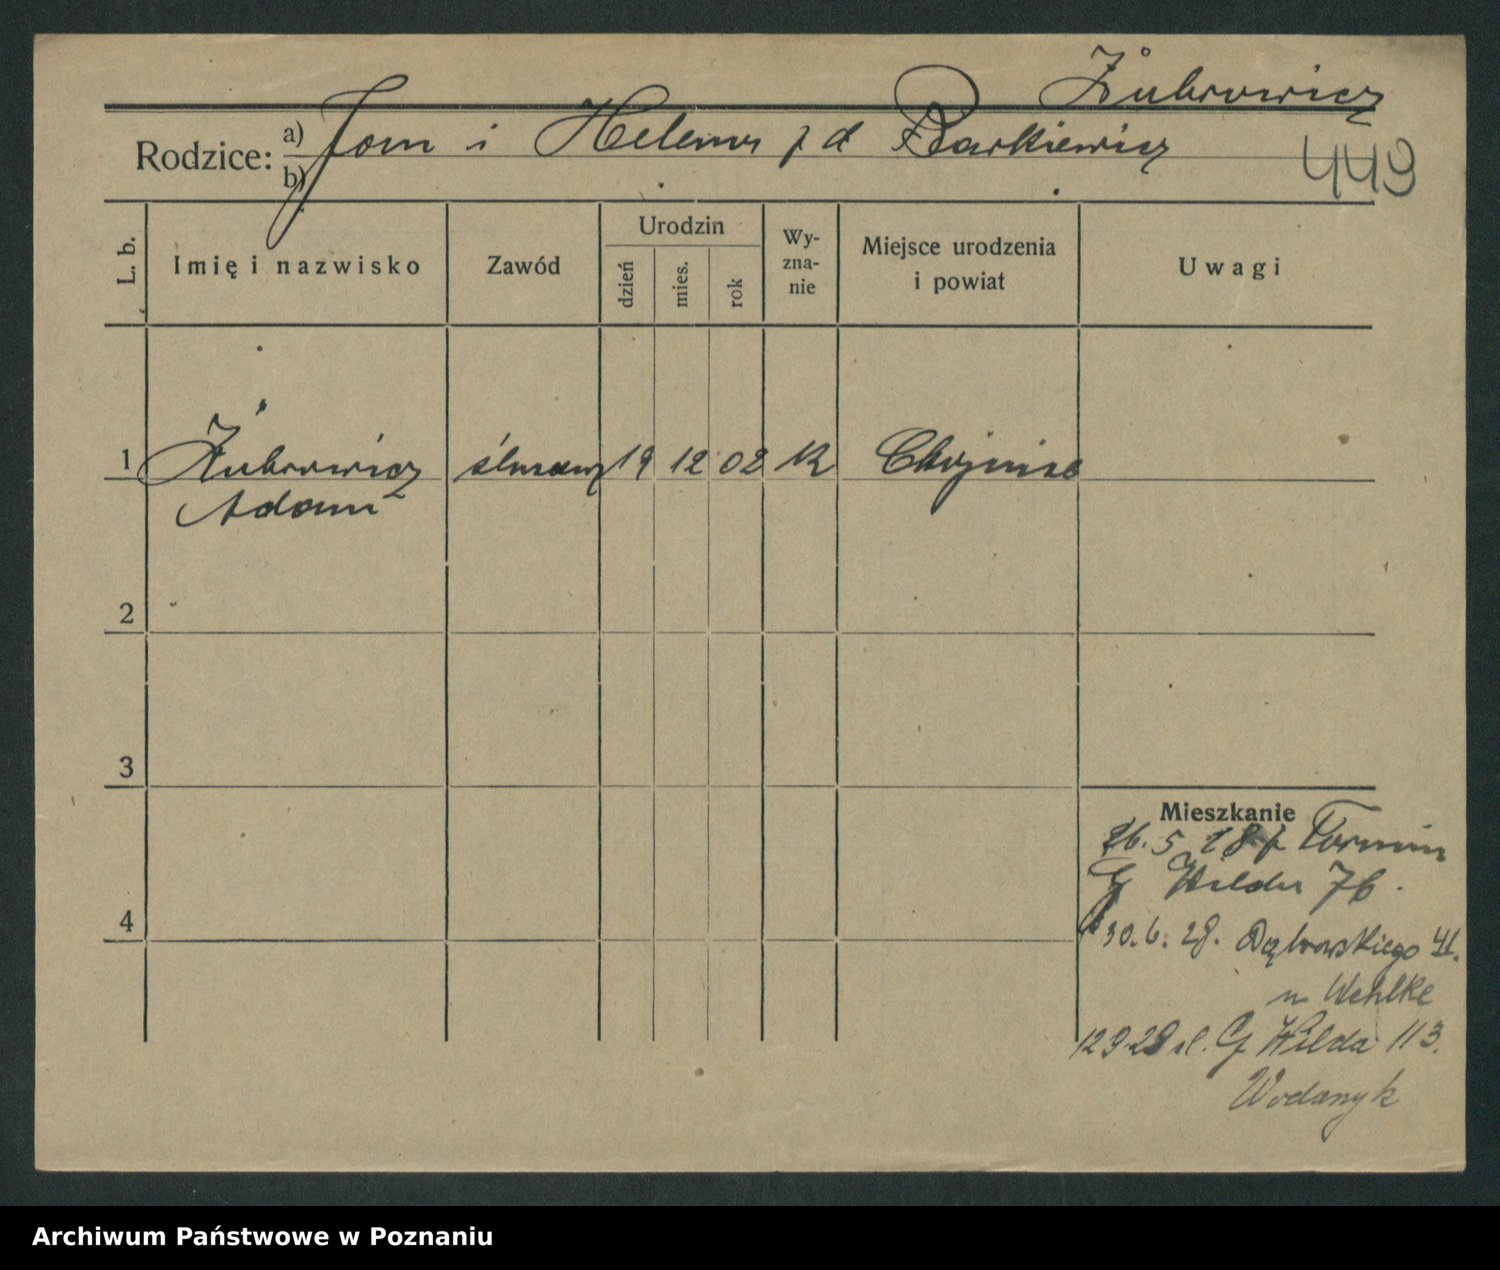 Żubrowicz
Rodzice: a) Jan i Helena z d Barkiewicz
b)
449
L. b. Imię i nazwisko Zawód Urodzin Wyznanie Miejsce urodzenia i powiat Uwagi
dzień mies. rok
1 Żubrowicz ślusarz 19 12 02 k Chojnice
Adam
2
3
Mieszkanie
26. 5 28 z Toruniu
G Wilda 76.
4
30. 6. 28. Dąbrowskiego 41.
u Wehlke
12 9 28 G Wilda 113.
Wodanyk
Archiwum Państwowe w Poznaniu